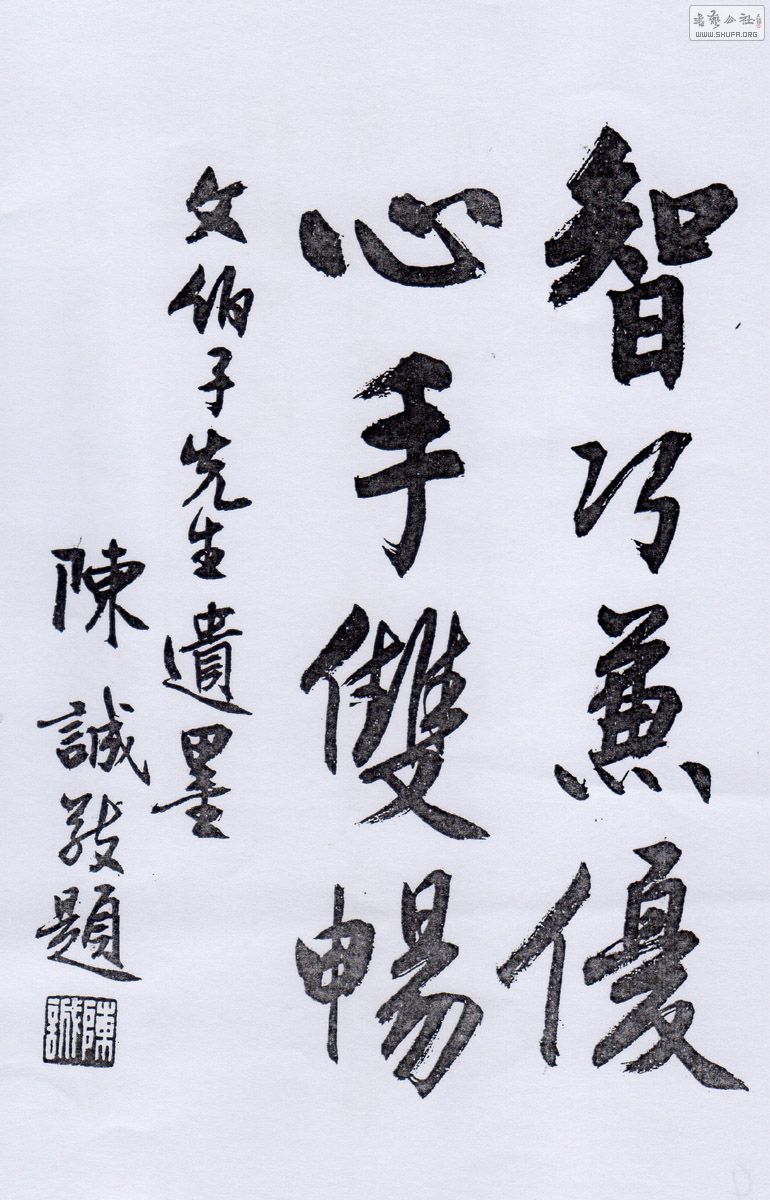 智巧兼優
心手雙暢
文伯子先生遺墨
陳誠敬題
陳誠
書藝公社
WWW.SHUFA.ORG